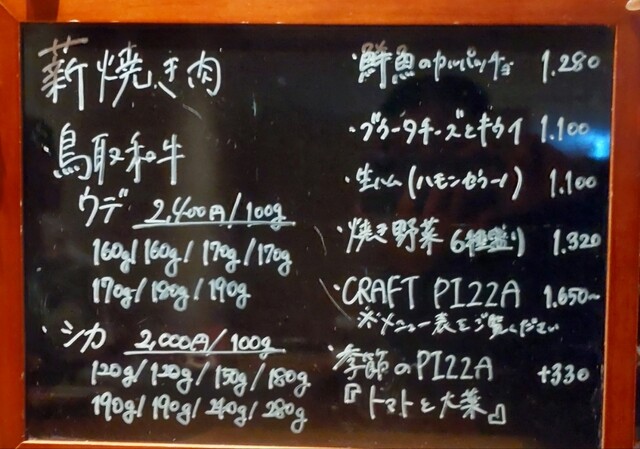 薪焼き肉
・鳥取和牛
ウデ 2,400円/100g
160g/160g/170g/170g
170g/180g/190g
・シカ 2,000円/100g
120g/120g/150g/180g
190g/190g/240g/280g
・鮮魚のカルパッチョ 1.280
・ブラータチーズとキウイ 1.100
・生ハム(ハモンセラーノ) 1.100
・焼き野菜 6種盛り 1.320
・CRAFT PIZZA 1.650〜
※メニュー表をご覧ください
・季節のPIZZA +330
『トマトと大葉』